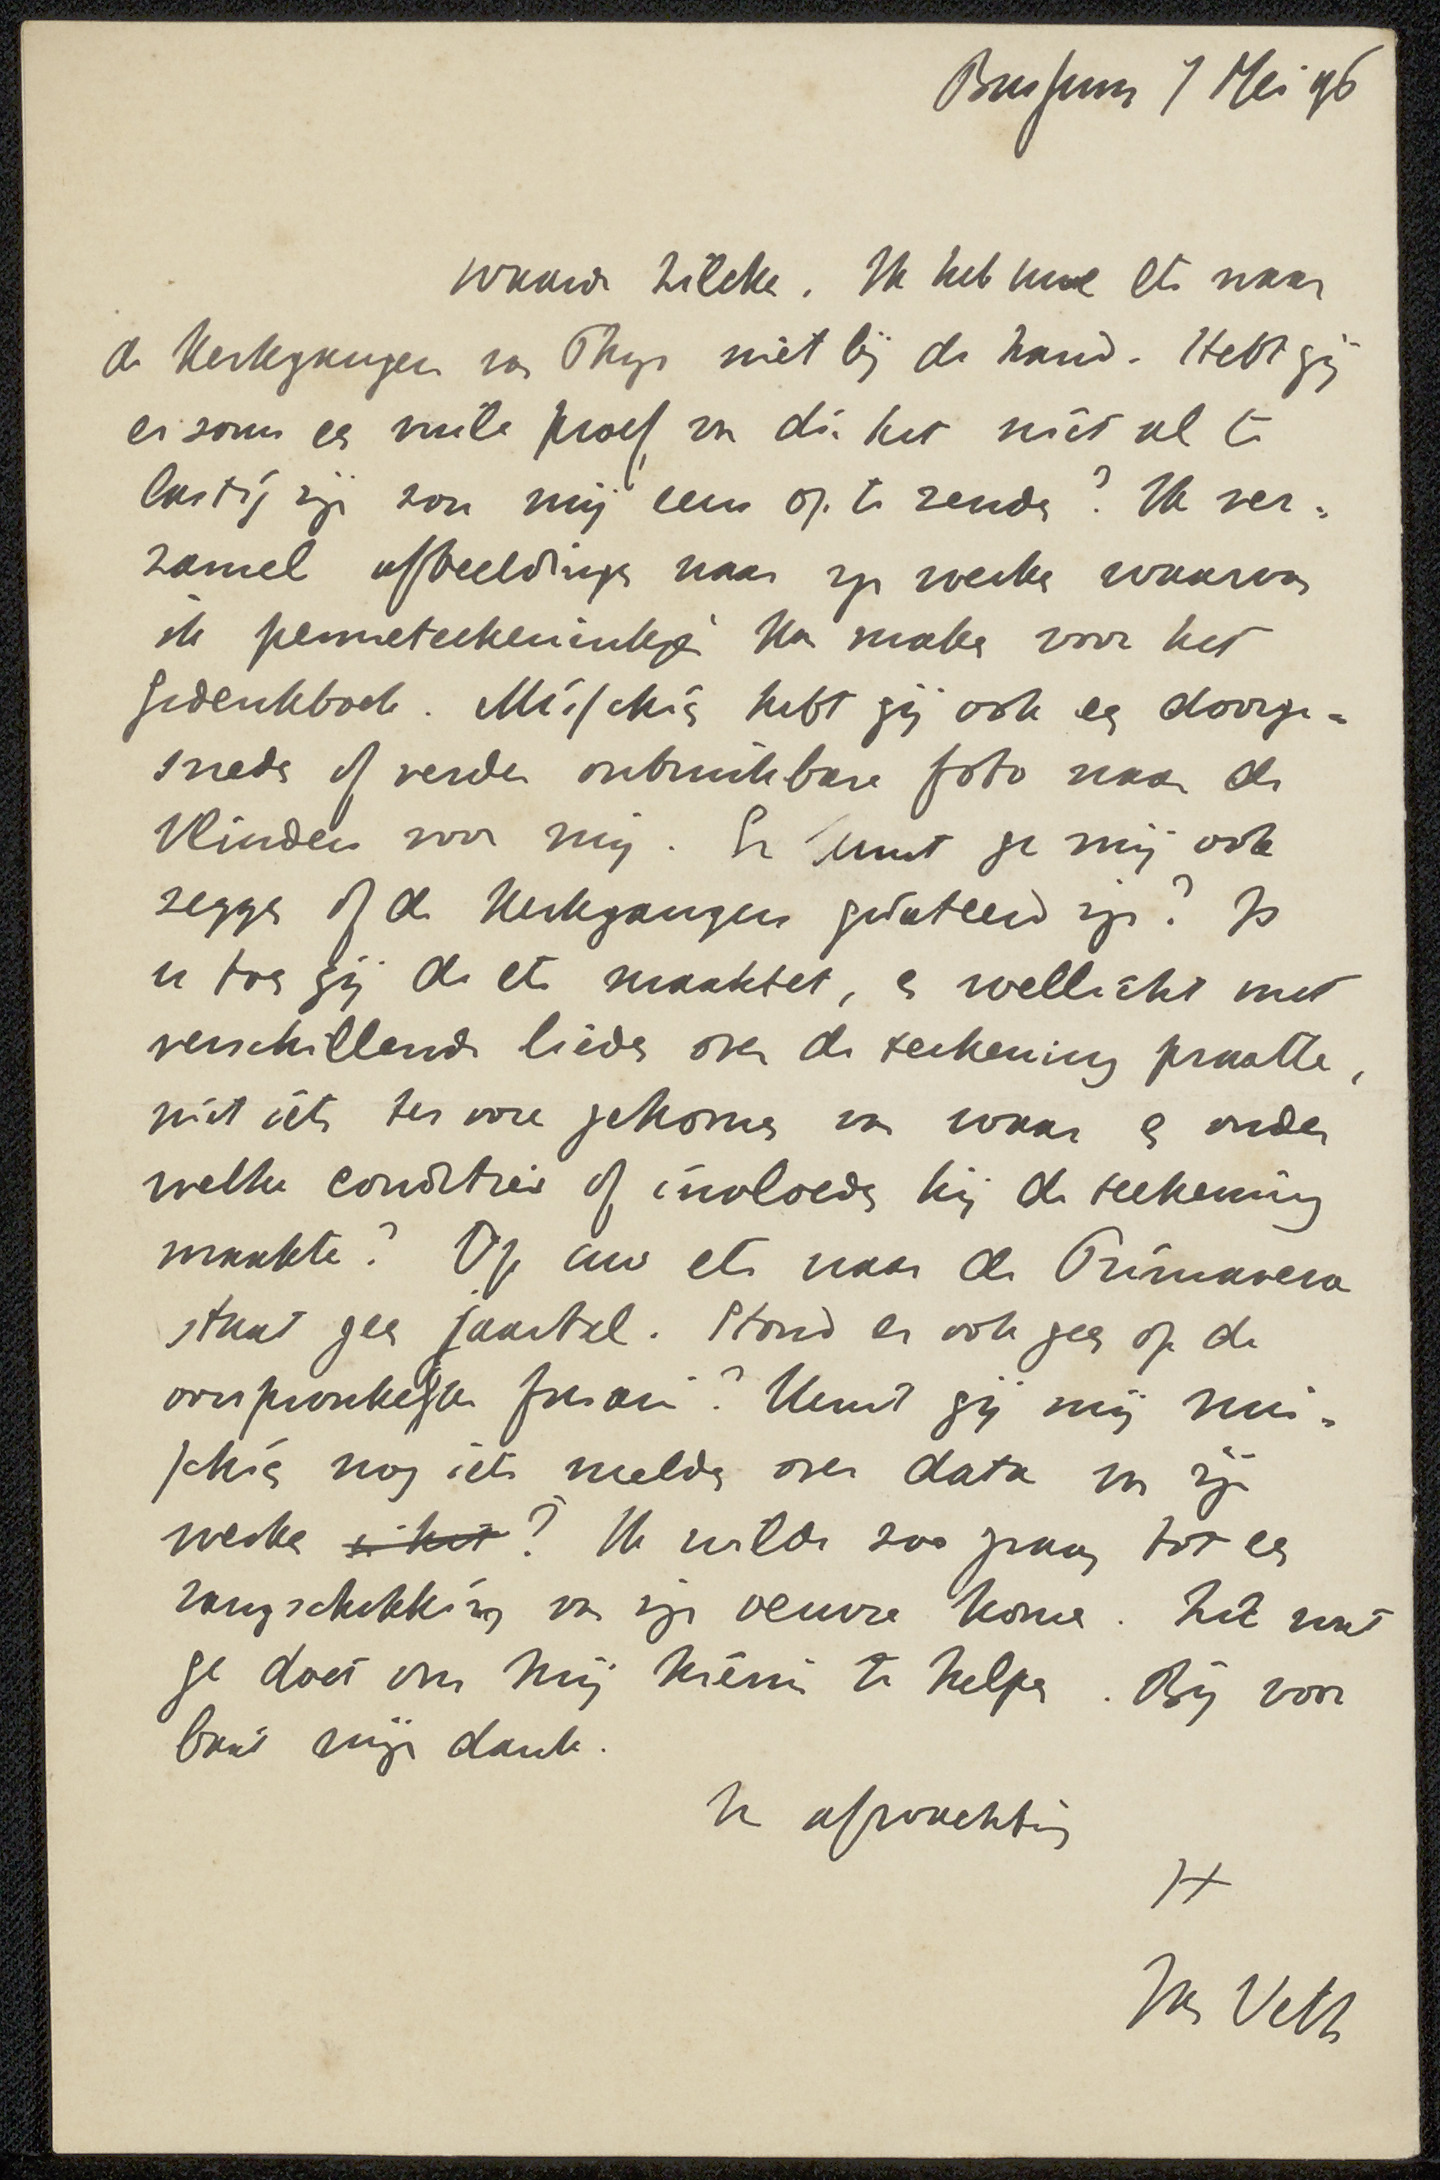 Bussum 7 Mei 96
Waarde Zilcken. Ik heb uwe ets naar
de Kerkgangers van Thijs niet bij de hand. Hebt gij
er soms een vuile proef van die het niet al te
lastig zijn zou mij eens op te zenden? Ik ver=
zamel afbeeldingen naar zijn werken waarvan
ik penneteekeninkjes kan maken voor het
gedenkboek. Misschien hebt gij ook een doorge=
sneden of verder onbruikbare foto naar de
Vlinders voor mij. En kunt ge mij ook
zeggen of de Kerkgangers gedateerd zijn? Is
u toen gij de ets maaktet, en wellicht met
verschillende lieden over de teekening praatte,
niet iets ter oore gekomen van waar en onder
welke condities of invloeden hij de teekening
maakte? Op uw ets naar de Primavera
staat geen jaartal. Stond er ook geen op de
oorspronkelijke fusain? Kunt gij mij mis=
schien nog iets melden over data van zijn
werken ? Ik wilde zoo graag tot een
rangschikking van zijn oeuvre komen. Zie wat
ge doet om mij hierin te helpen. Bij voor
baat mijn dank.
In afwachting
tt
Jan Veth